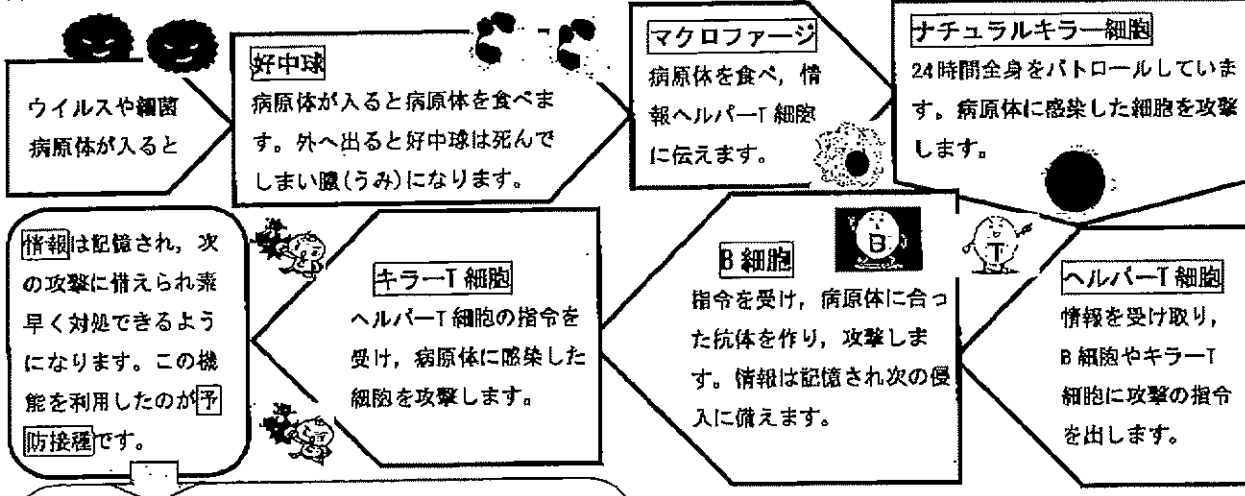 ウイルスや細菌
病原体が入ると
好中球
病原体が入ると病原体を食べま
す。外へ出ると好中球は死んで
しまい膿(うみ)になります。
マクロファージ
病原体を食べ，情
報ヘルパーT細胞
に伝えます。
ナチュラルキラー細胞
24時間全身をパトロールしていま
す。病原体に感染した細胞を攻撃
します。
ヘルパーT細胞
情報を受け取り，
B細胞やキラーT
細胞に攻撃の指令
を出します。
T
B
B細胞
指令を受け，病原体に合っ
た抗体を作り，攻撃しま
す。情報は記憶され次の侵
入に備えます。
キラーT細胞
ヘルパーT細胞の指令を
受け，病原体に感染した
細胞を攻撃します。
情報は記憶され，次
の攻撃に備えられ素
早く対処できるよう
になります。この機
能を利用したのが予
防接種です。